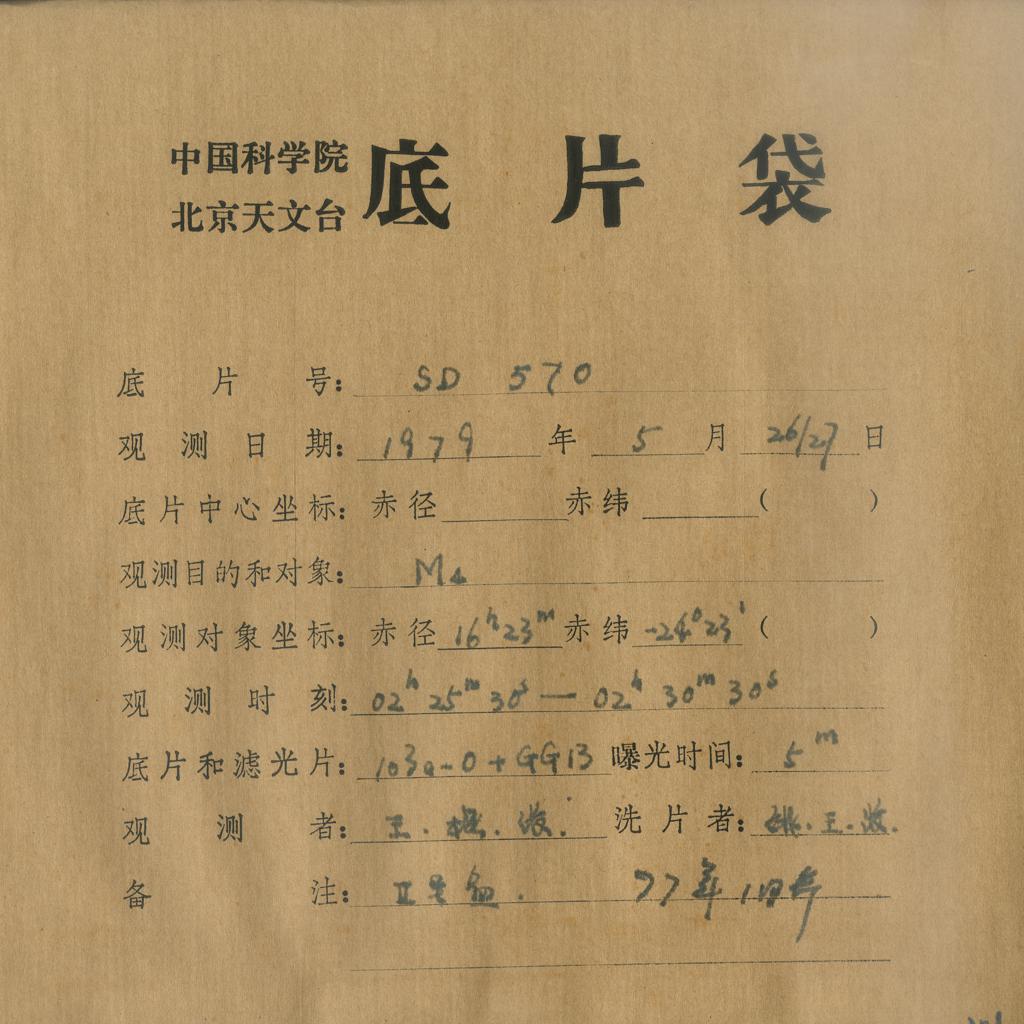 中国科学院
北京天文台 底片袋
底片号: SD 570
观测日期: 1979年 5月 26/27日
底片中心坐标: 赤径 赤纬 ( )
观测目的和对象: M4
观测对象坐标: 赤径 16h23m 赤纬 -24°23' ( )
观测时刻: 02h 25m 30s — 02h 30m 30s
底片和滤光片: 103a-O + GG13 曝光时间: 5m
观测者: 王. 洗片者: 王.
备注: 77年